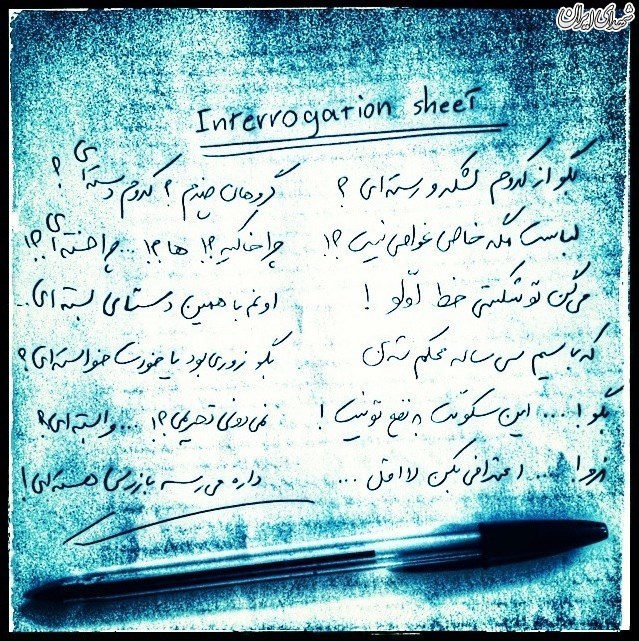 شهدای ایران
Interrogation sheet
بگو از کدوم لشکر و رسته ای ؟ گروهان چندم ؟ کدوم دسته ای ؟
لباست مگه خاص غواصی نیست ؟! چرا خاکیه ؟! ها ؟! ... چرا خسته ای ؟!
می گن تو شکستی خط اولو ! اونم با همین دستای بسته ای ..
که با سیم سی ساله محکم شدن بگو زوری بود یا خودت خواسته ای ؟
بگو ! ... این سکوتت به نفع تو نیست ! نمی دونی تحریمی ؟! ... وابسته ای ؟
زود ! ... اعترافی بکن لااقل ... داره می رسه بازرس هسته ای !